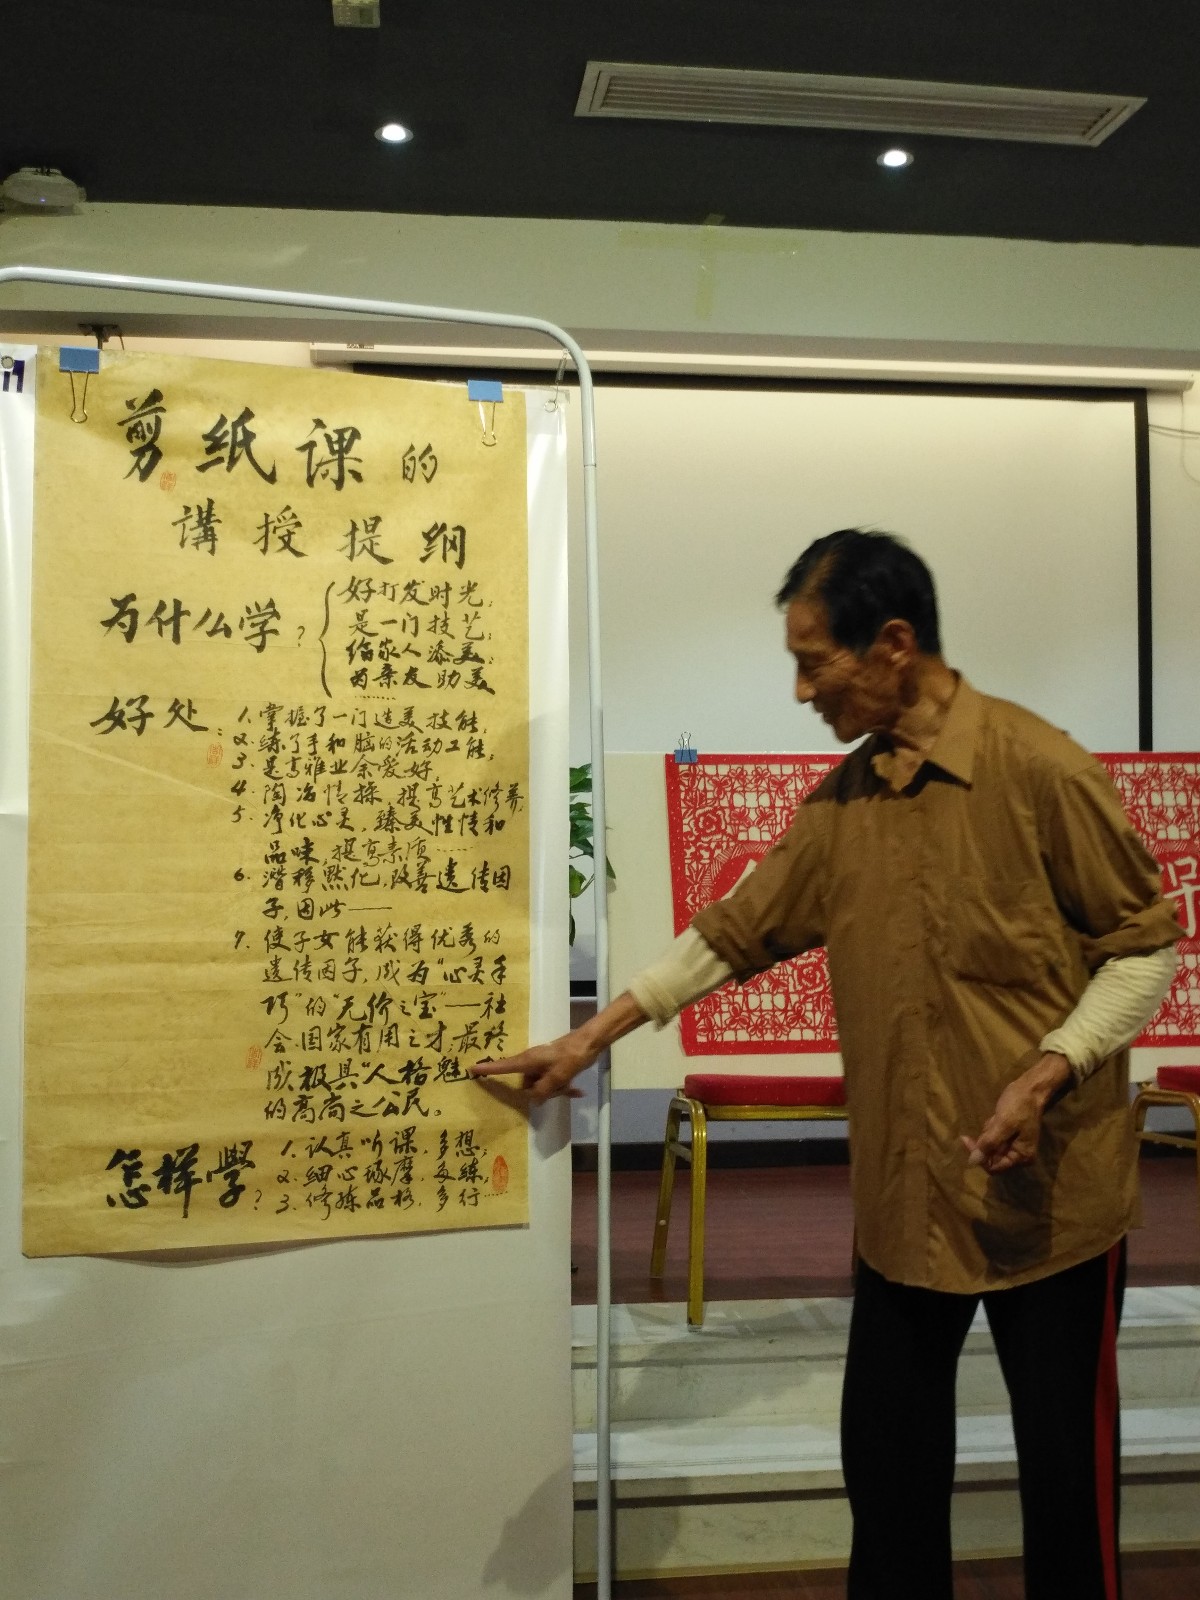 剪纸课的
講授提纲
为什么学?
好打发时光;
是一门技艺;
给家人添美;
为亲友助美
……
好处:
1.掌握了一门造美技能,
2.练了手和脑的活动工能;
3.是高雅业余爱好,
4.陶冶情操,提高艺术修养,
5.净化心灵,臻美性情和
品味,提高素质……
6.潜移默化,改善遗传因
子,因此——
7.使子女能获得优秀的
遗传因子,成为"心灵手
巧"的"无价之宝"——社
会、国家有用之才;最终
成极具"人格魅
的高尚之公民。
怎样學?
1.认真听课,多想;
2.细心琢摩,多练;
3.修炼品格,多行……
保